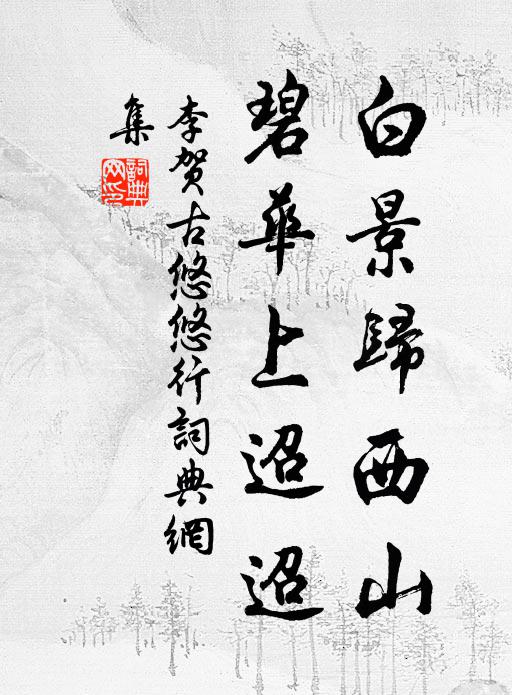 白景歸西山
碧華上迢迢
李贺古悠悠行詞典網
集
詞典
网印